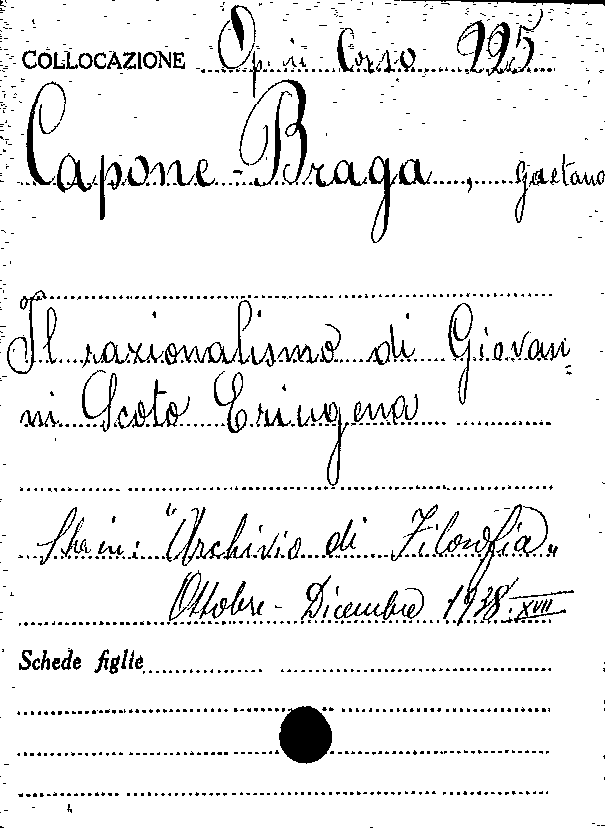 COLLOCAZIONE Op. in Corso 995
Capone-Braga, Gaetano
Il razionalismo di Giovan-
ni Scoto Eriugena
in: "Archivio di Filosofia"
Ottobre - Dicembre 1938. XVII
Schede figlie